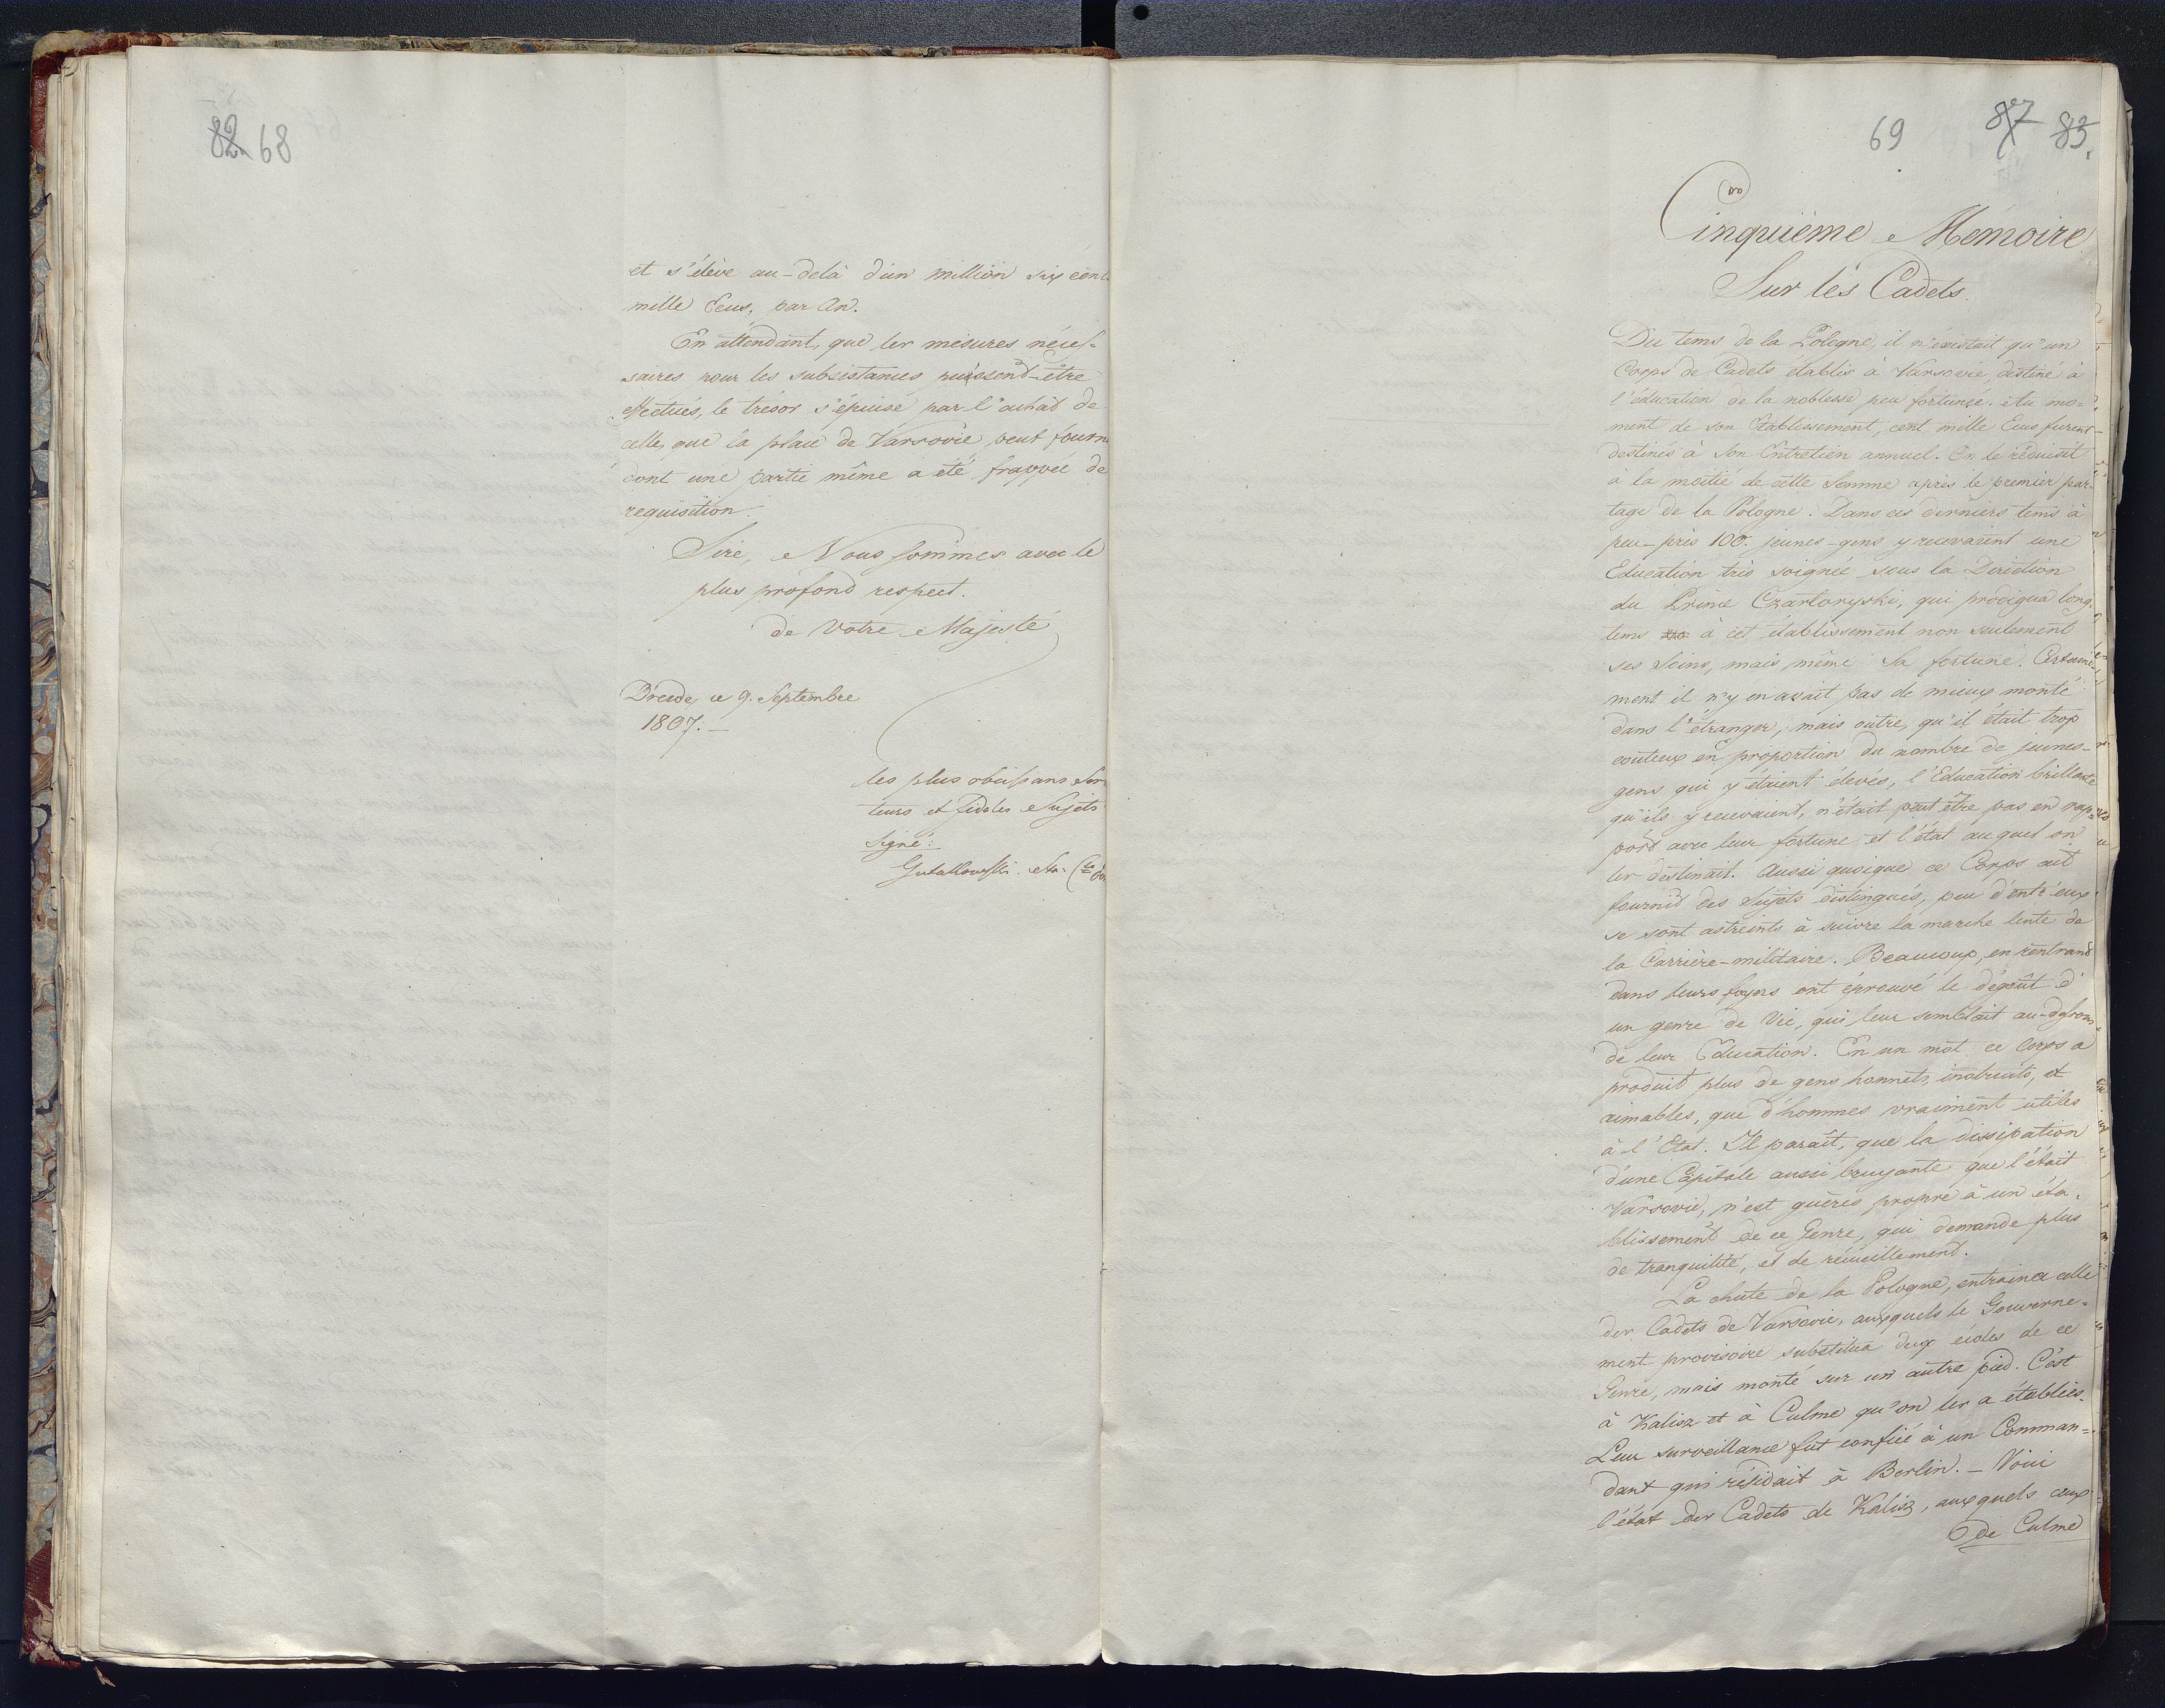 82 68
et s'élève au-delà d'un million six cent
mille Ecus, par An.
En attendant, que les mésures néces-
saires pour les subsistances puissent-être
effectués, le trésor s'épuise par l'achat de
celles, que la place de Varsovie peut fourn
dont une partie même a été frappée de
requisition.
Sire, Nous sommes avec le
plus profond respect.
de Votre Majesté
Dresde, ce 9. Septembre
1807. —
les plus obéissans Ser
teurs et fidèles Sujets
Signé:
Gutakowski.
69 87 83.
Cinquième Mémoire
Sur les Cadets.
Du tems de la Pologne, il n'éxistait qu'un
Corps de Cadets établis à Varsovie, destiné à
l'éducation de la noblesse peu fortunée. Au mo=
ment de son Etablissement, cent mille Ecus furent
destinés à son Entretien annuel. On le réduisit
à la moitié de cette Somme après le premier par=
tage de la Pologne. Dans ces derniers tems à
peu-près 100. jeunes-gens y recevaient une
Education très soignée sous la Direction
du Prince Czartoryski, qui prodigua long-
tems à cet établissement non seulement
ses Soins, mais même sa fortune. Certaine=
ment il n'y en avait pas de mieux monté
dans l'étranger, mais outre, qu'il était trop
couteux en proportion du nombre de jeunes-
gens qui y étaient élevés, l'Education brillante
qu'ils y recevaient, n'était peut être pas en rap=
port avec leur fortune et l'état auquel on
les destinait. Aussi quoique ce Corps ait
fournit des Sujets distingués, peu d'entr'eux
se sont astreints à suivre la marche lente de
la Carrière-militaire. Beaucoup, en rentrant
dans leurs foyers ont éprouvé le dégoût d'
un genre de Vie, qui leur semblait au-dessous
de leur Education. En un mot ce Corps a
produit plus de gens honnets, instruits, et
aimables, que d'hommes vraiment utiles
à l'Etat. Il paraît, que la dissipation
d'une Capitale aussi bruyante que l'était
Varsovie, n'est guères propre à un éta=
blissement de ce Genre, qui demande plus
de tranquilité, et de récueillement.
La chute de la Pologne, entraina celle
des Cadets de Varsovie, auxquels le Gouverne=
ment provisoire substitua deux écoles de ce
Genre, mais monté sur un autre pied. C'est
à Kalisz et à Culme qu'on les a établies.
Leur surveillance fut confiée à un Comman=
dant qui résidait à Berlin. — Voici
l'état des Cadets de Kalisz, auxquels ceux
de Culme